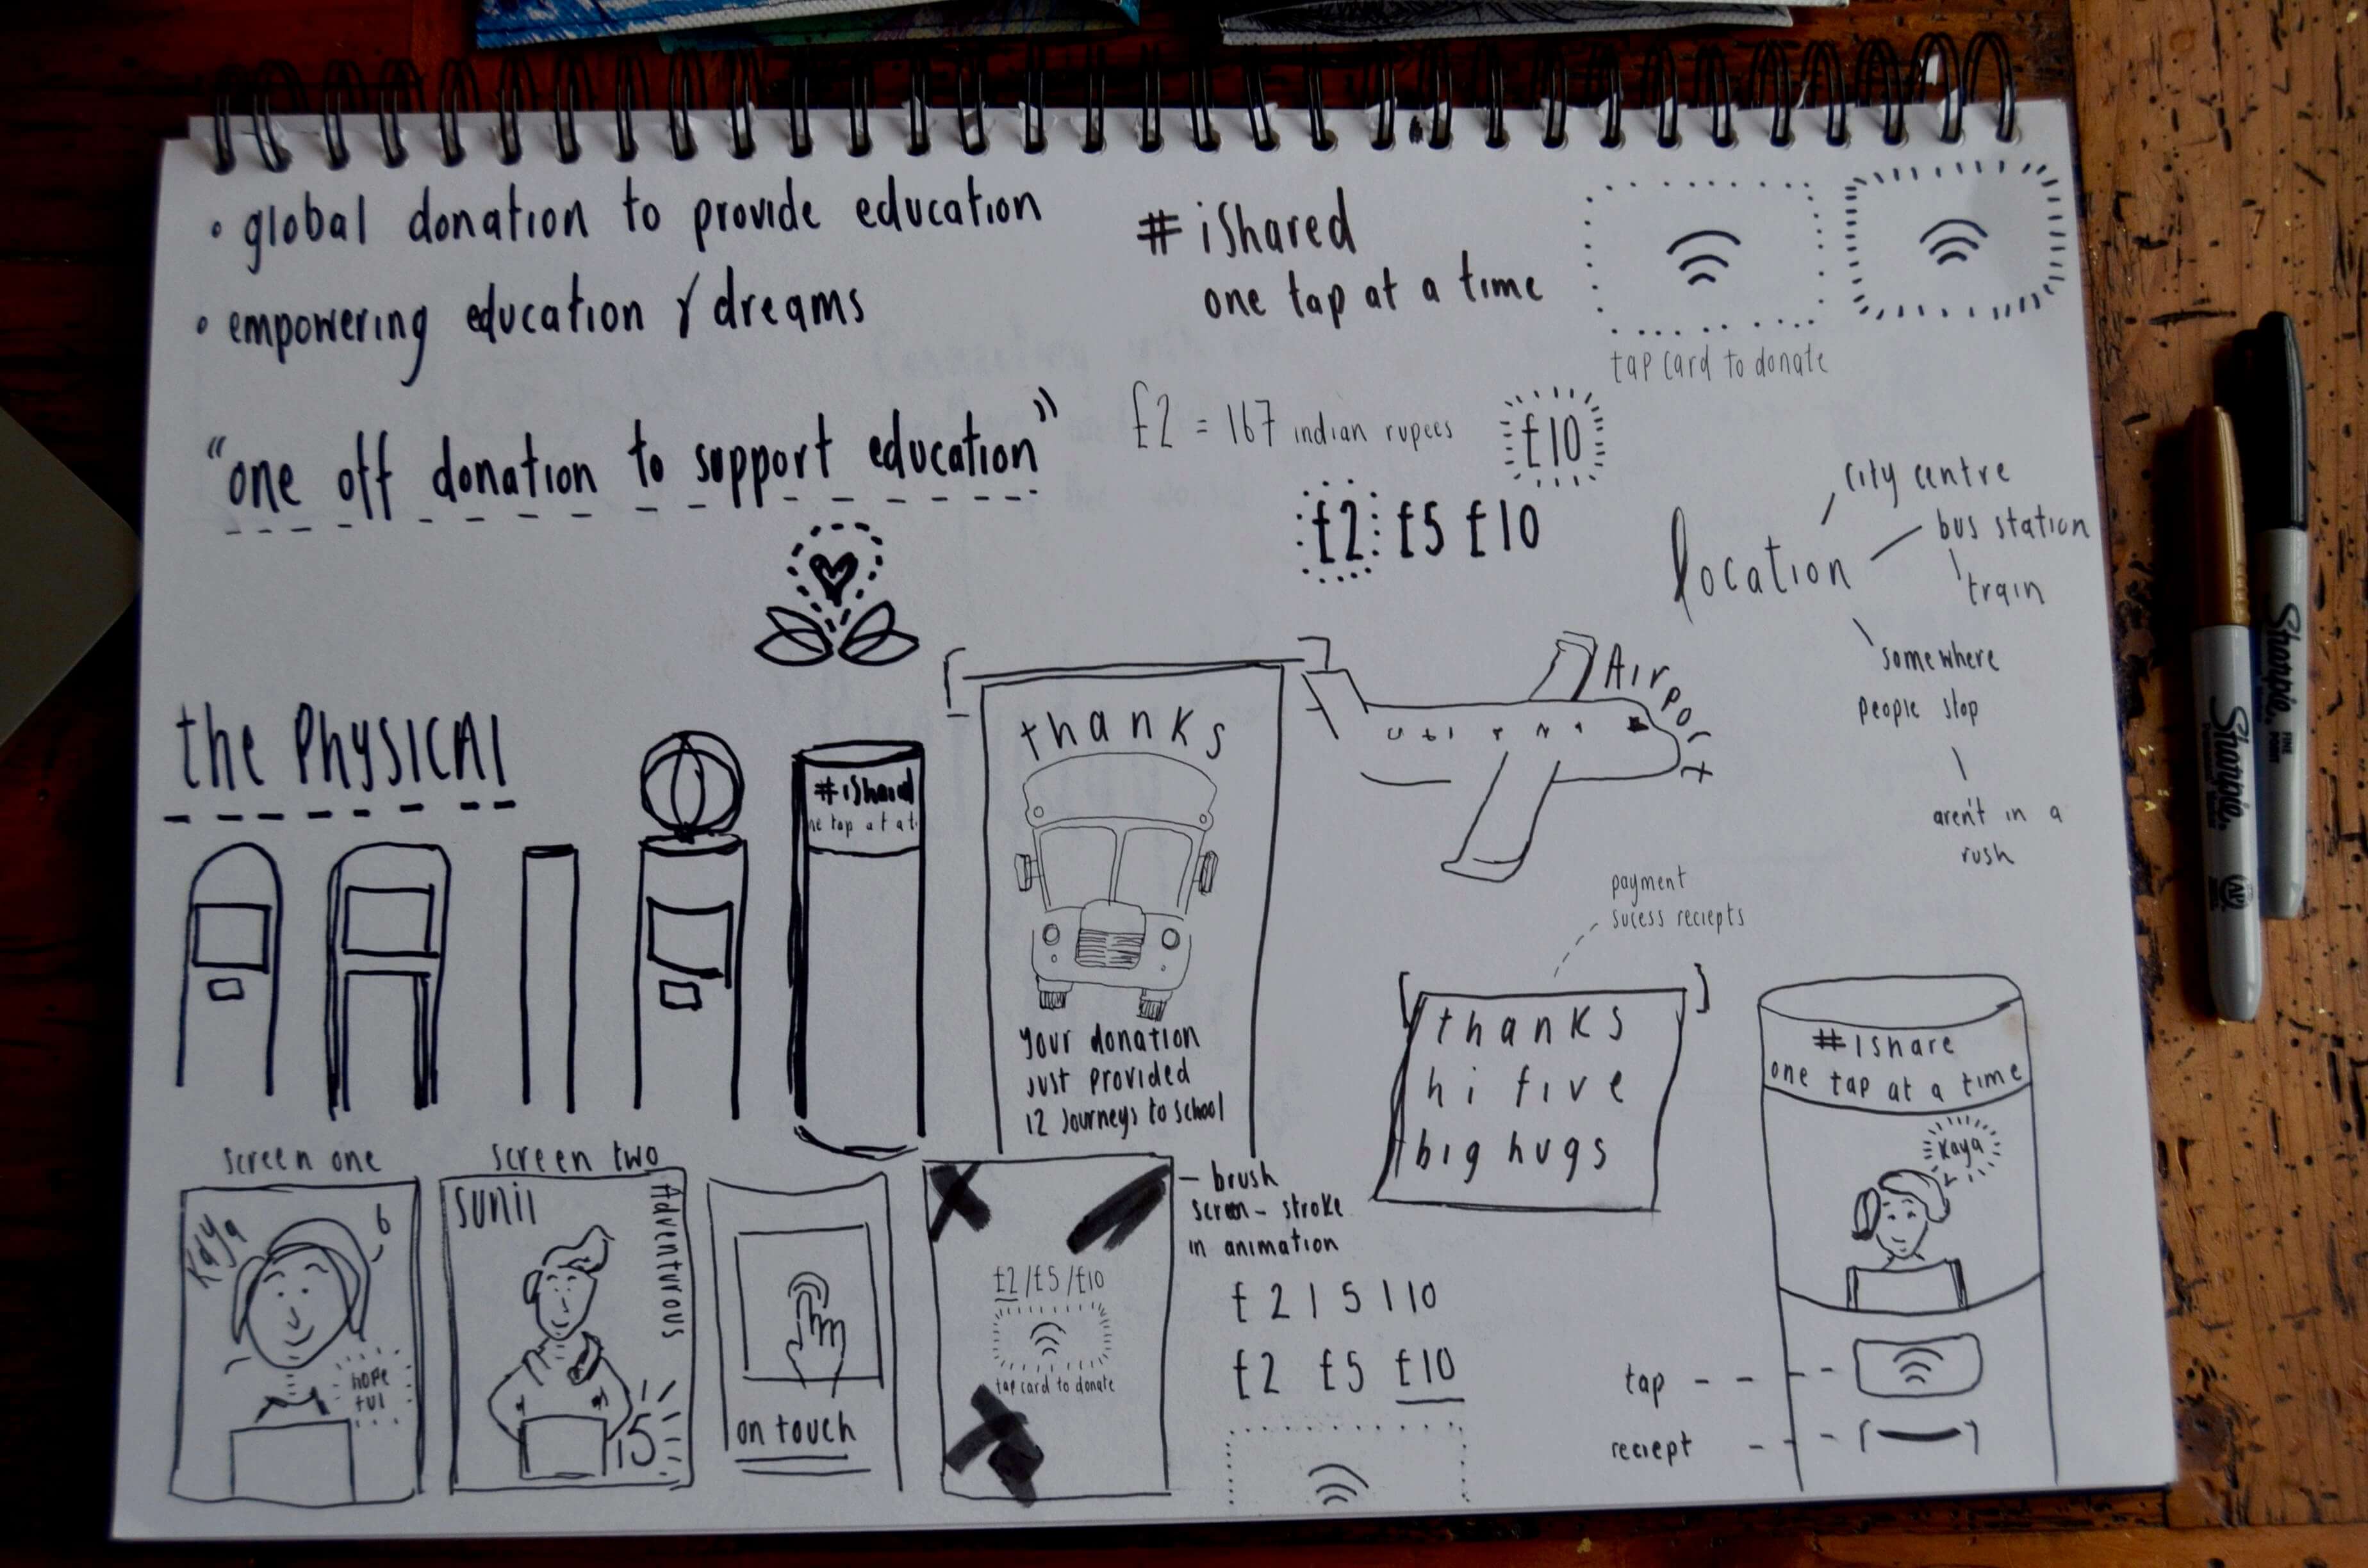 • global donation to provide education
• empowering education & dreams
"one off donation to support education"
# iShared
one tap at a time
tap card to donate
£2 = 167 indian rupees
£10
£2 £5 £10
location
city centre
bus station
train
somewhere
people stop
aren't in a
rush
Airport
the Physical
#iShared
ne tap at at
thanks
your donation
just provided
12 Journeys to school
payment
sucess reciepts
thanks
hi five
big hugs
#1share
one tap at a time
Kaya
tap
reciept
screen one
Kaya
6
hope
ful
screen two
sunil
Adventurous
15
on touch
£2/£5/£10
tap card to donate
– brush
screen – stroke
in animation
£ 2 | 5 | 10
£2 £5 £10
Sharpie.
FINE
POINT
Sharpie.
AP